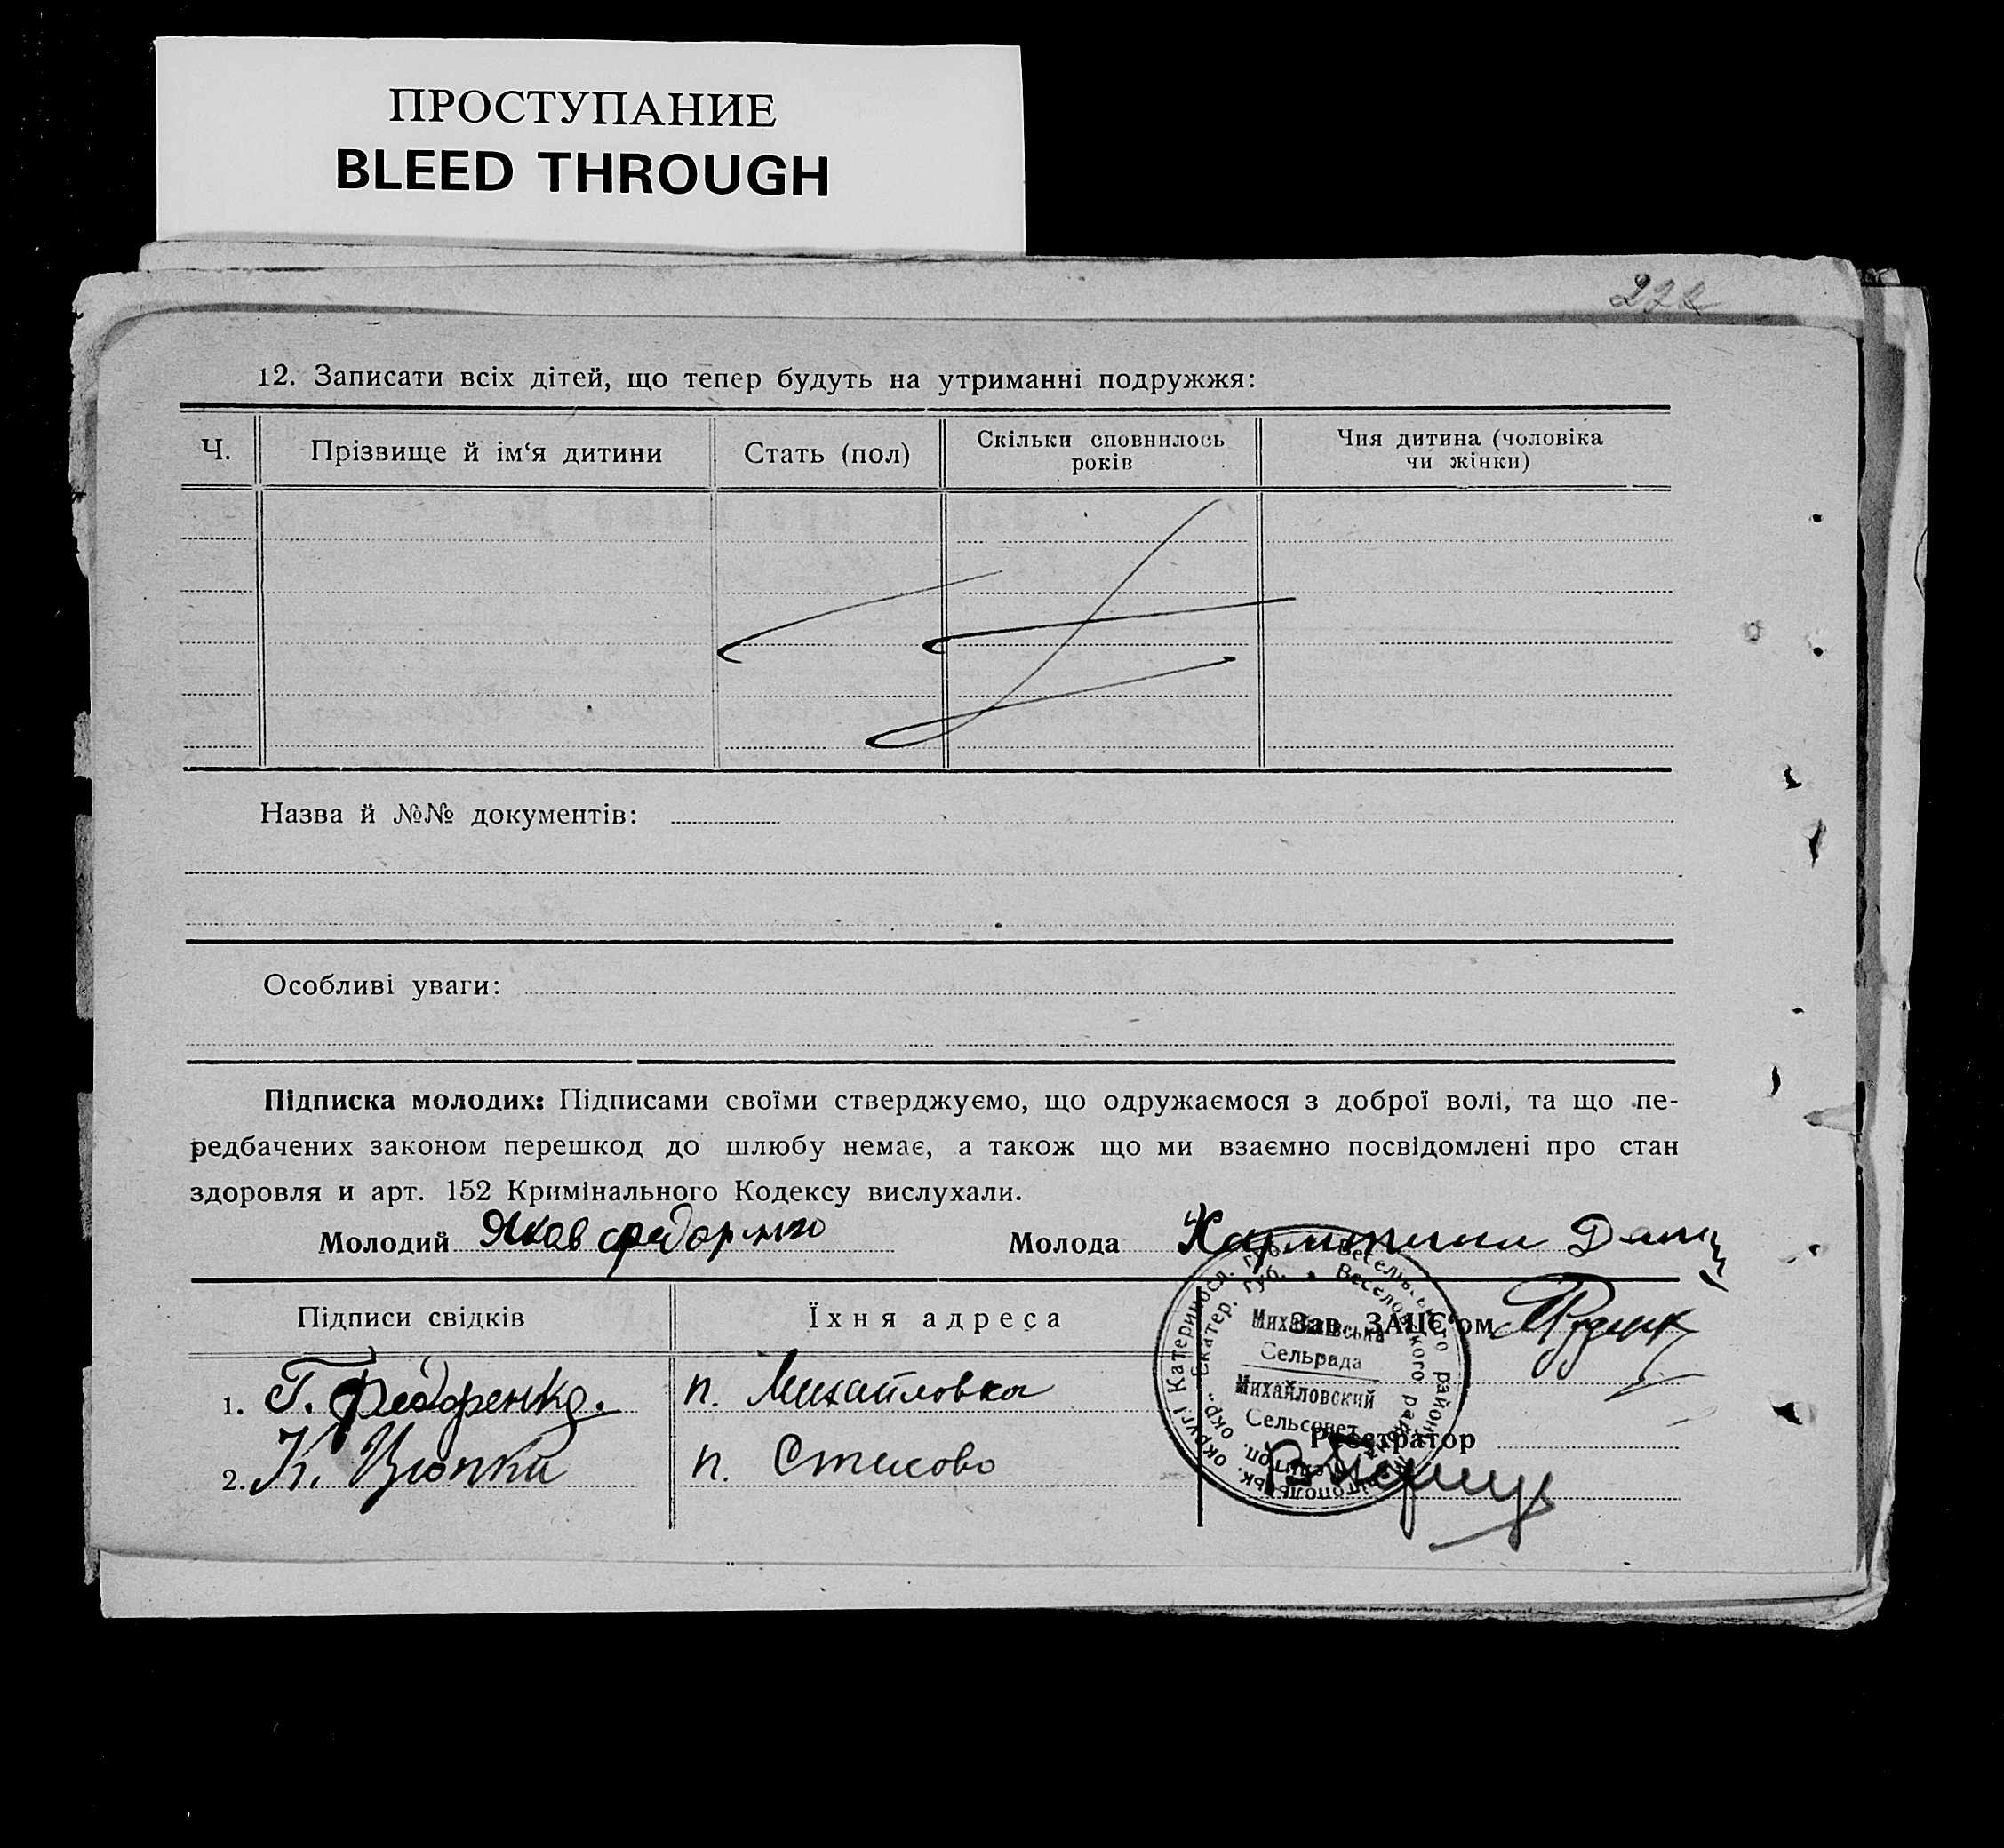 ПРОСТУПАНИЕ
BLEED THROUGH
12. Записати всіх дітей, що тепер будуть на утриманні подружжя:
Ч. Прізвище й ім‘я дитини Стать (пол) Скільки сповнилось років Чия дитина (чоловіка чи жінки)
Назва й №№ документів:
Особливі уваги:
Підписка молодих: Підписами своїми стверджуємо, що одружаємося з доброї волі, та що пе-
редбачених законом перешкод до шлюбу немає, а також що ми взаємно посвідомлені про стан
здоровля и арт. 152 Кримінального Кодексу вислухали.
Молодий Яков Молода
Підписи свідків Їхня адреса Зав. ЗАЦС‘ом
1. Т. Федоренко. п. Михайловка
Реєстратор
2. К. п.
Михайлівська
Сельрада
Михайловский
Сельсовет